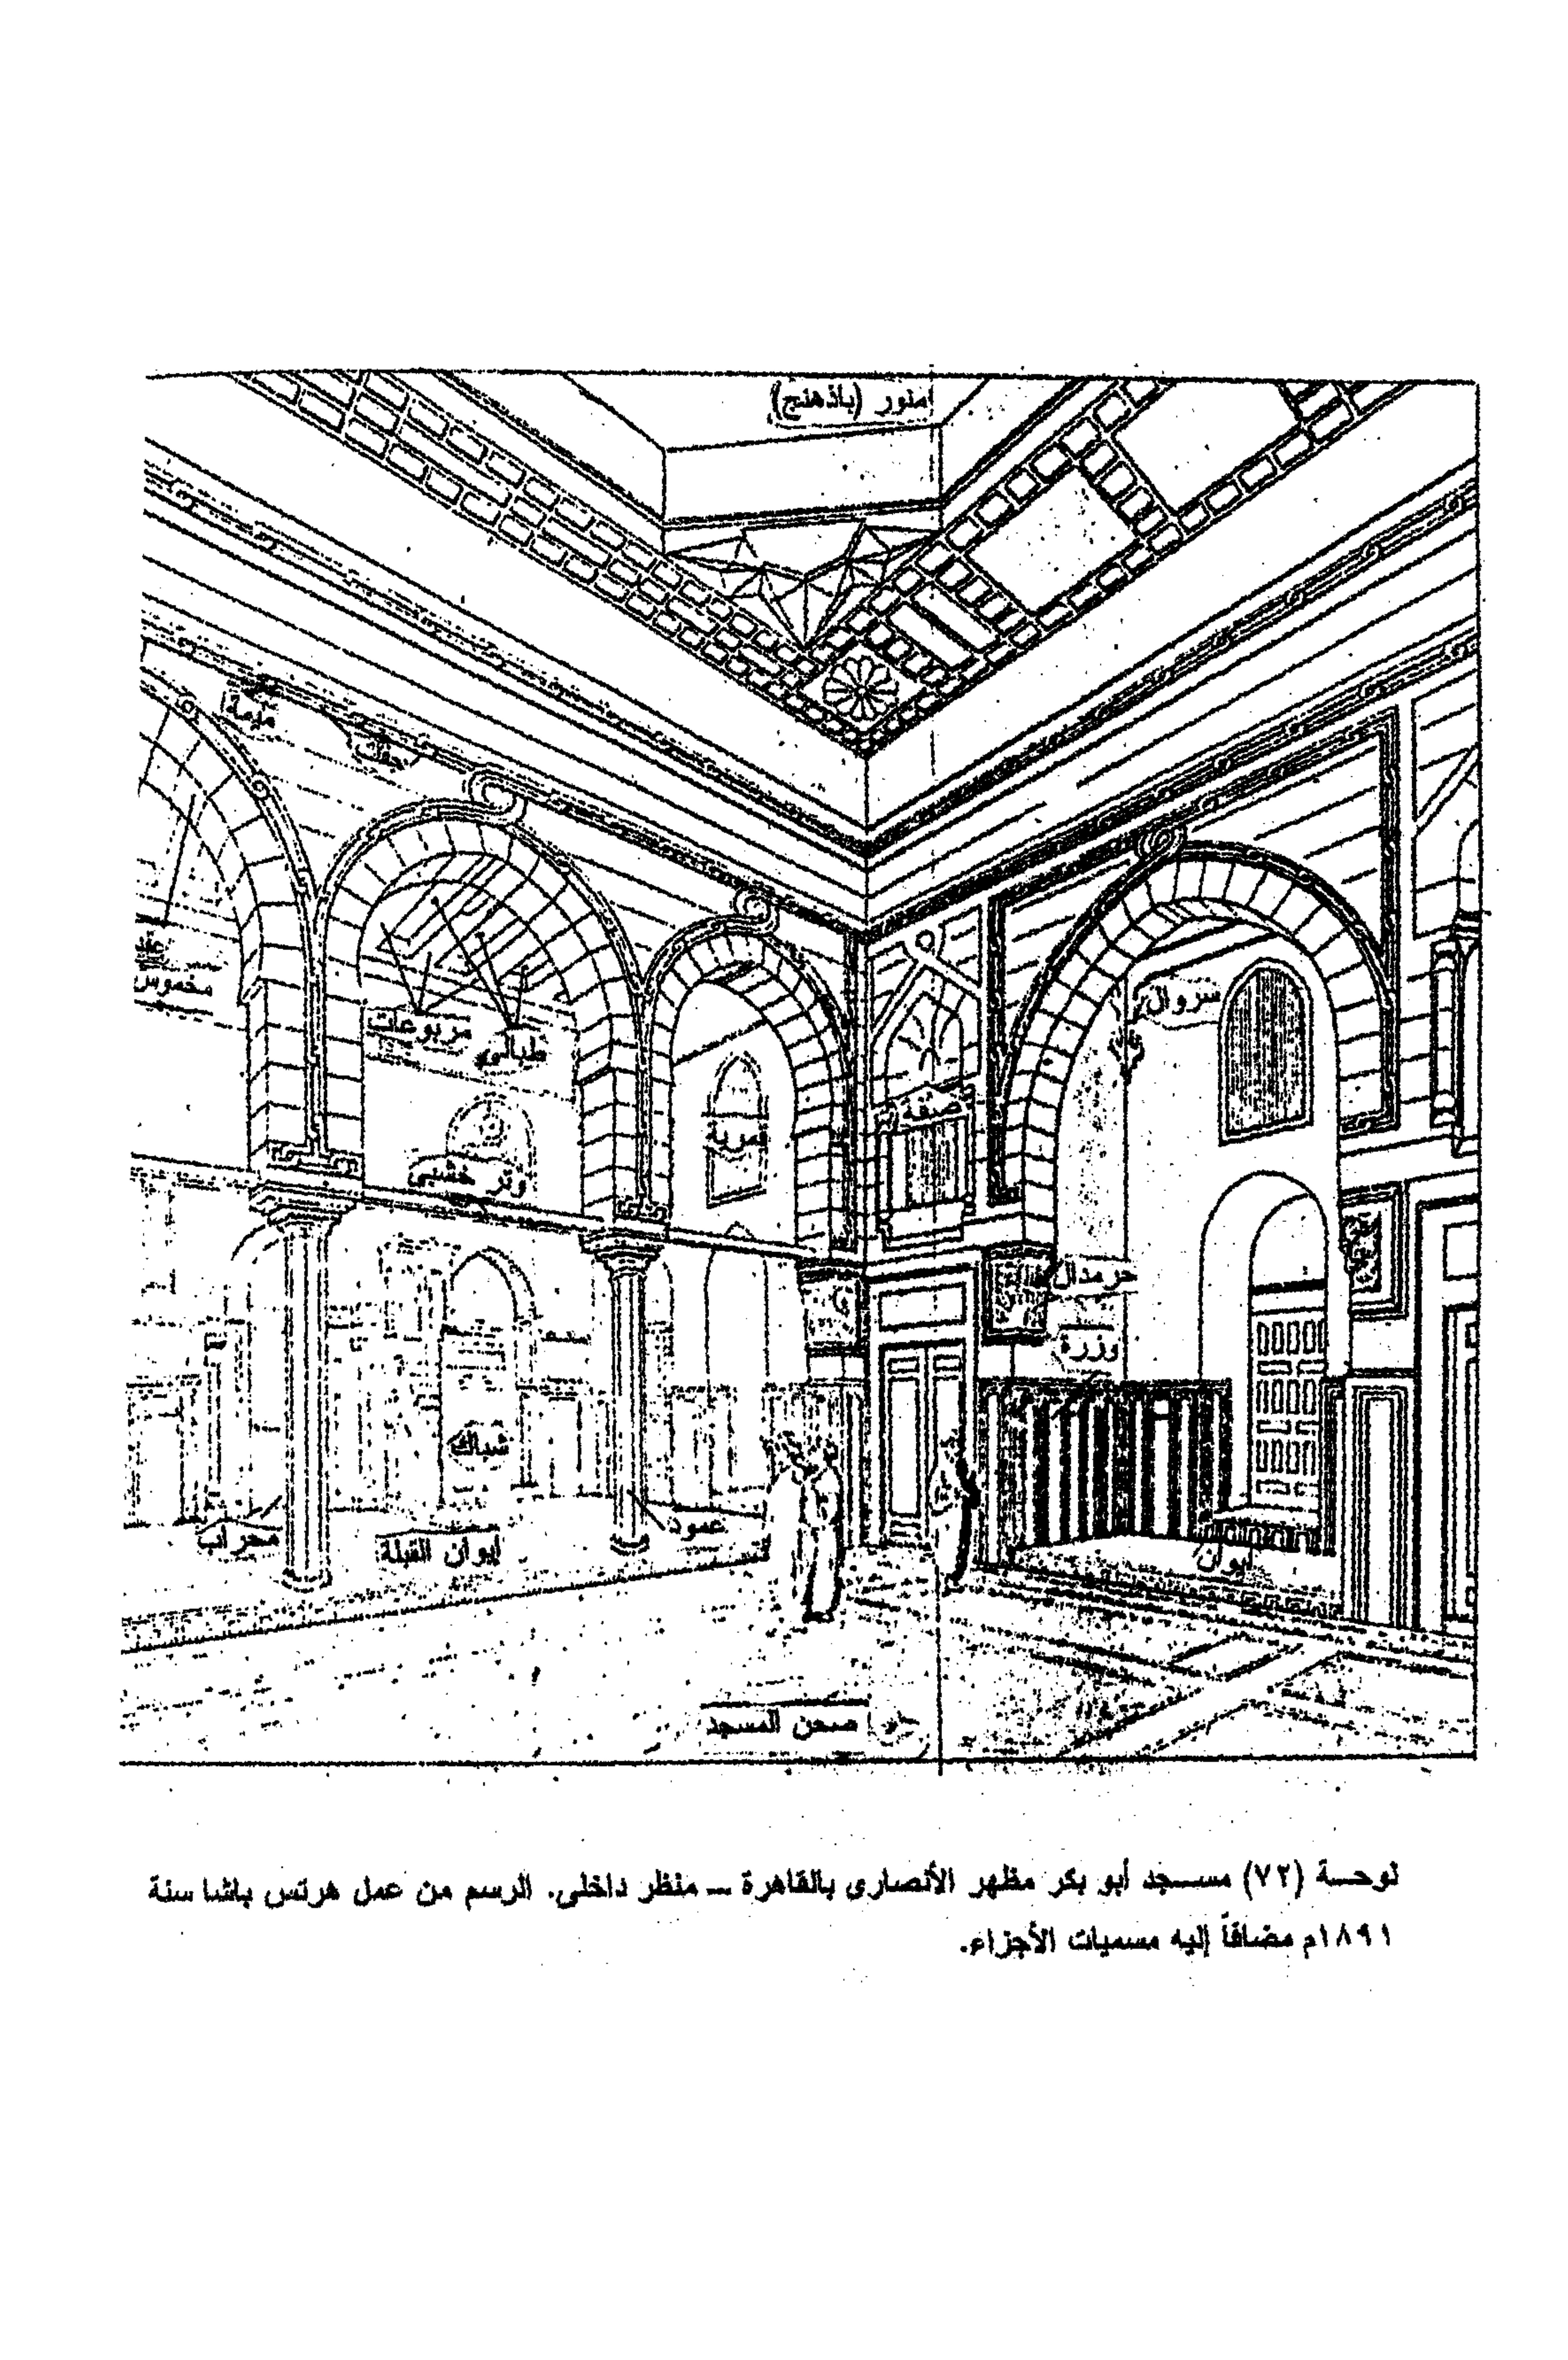 منور (باذهنج)
ميمة
جفت
عقد
مخموس
مربوعات
طبالي
سروال
صفة
قمرية
وتر خشبي
حرمدال
وزرة
شباك
عمود
محراب
إيوان القبلة
إيوان
صحن المسجد
لوحة (٧٢) مسجد أبو بكر مظهر الأنصارى بالقاهرة ــ منظر داخلى. الرسم من عمل هرتس باشا سنة
١٨٩١م مضافاً إليه مسميات الأجزاء.